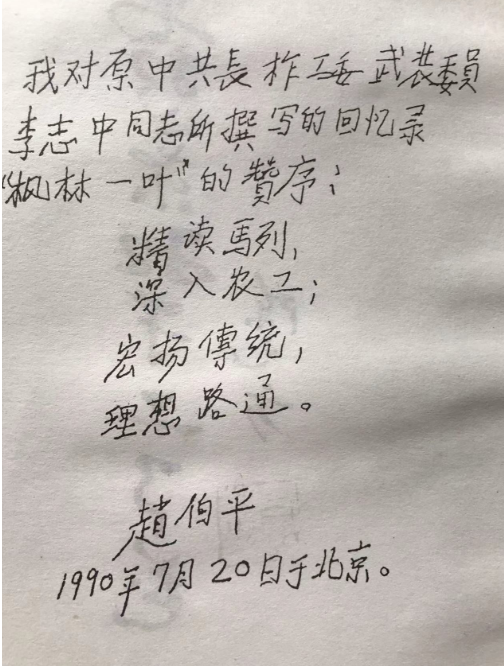 我对原中共長柞工委武装委員
李志中同志所撰写的回忆录
“枫林一叶”的贊序：
精读馬列，
深入农工；
宏扬傳統，
理想路通。
趙伯平
1990年7月20日于北京。